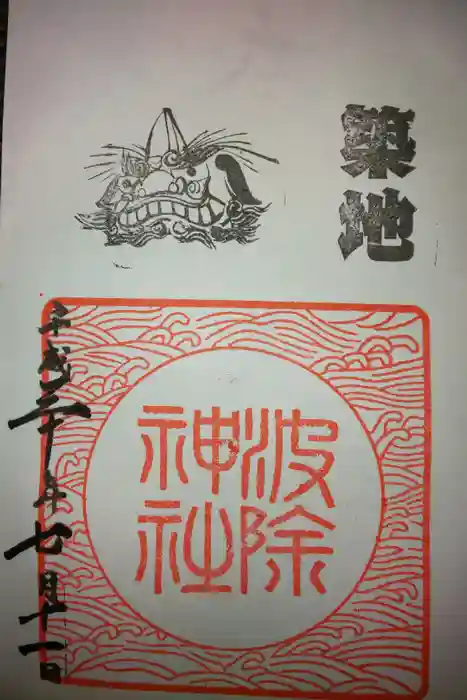 築地
波除
神社
平成三十年七月十一日